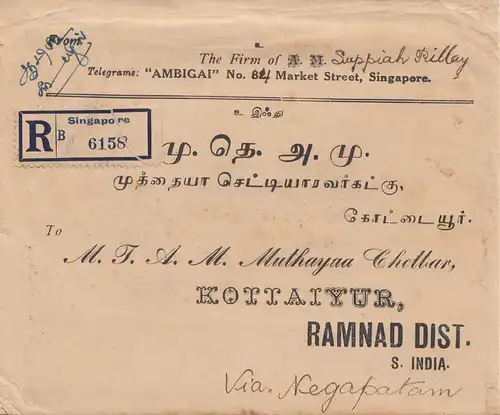 உ
From
The Firm of A. M. Suppiah Pillay
Telegrams: "AMBIGAI" No. 84 Market Street, Singapore.
உ இஃது
R B Singapore 6158
மு. தெ. அ. மு.
முத்தையா செட்டியாரவர்கட்கு,
கோட்டையூர்.
To
M. T. A. M. Muthayaa Chettiar,
KOTTAIYUR,
RAMNAD DIST.
S. INDIA.
Via. Negapatam